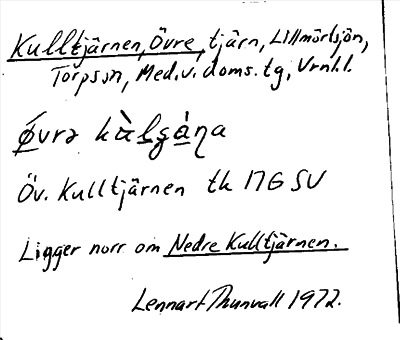 Kulltjärnen, Övre, tjärn, Lillmörtsjön,
Torpssn, Med.v. doms. tg, Vrnl.l.
Øvrə
Öv. Kulltjärnen tk 17G SV
Ligger norr om Nedre Kulltjärnen.
Lennart Thunvall 1972.